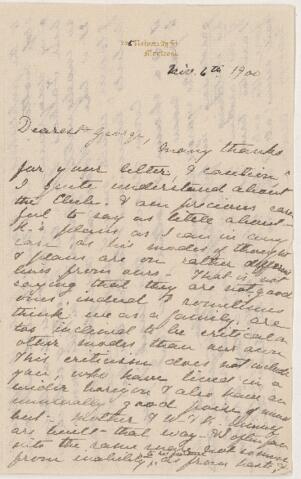 University St
Montreal
Nov. 6th 1900
Dearest George,
Many thanks
for your letter, & caution
I quite understand about
the Club. I am precious care-
ful to say as little about
plans as I am in any
case as his modes of thought
& plans are on rather different
lines from ours. That is not
saying that they are not good
ones, indeed I sometimes
think we as a family are
too inclined to be critical
other modes than our own
This criticism does not include
you, who have lived in a
wider horizon & also have an
unusually good
but Mother &
are built that way. & often fall
into the same
from inability as from haste &